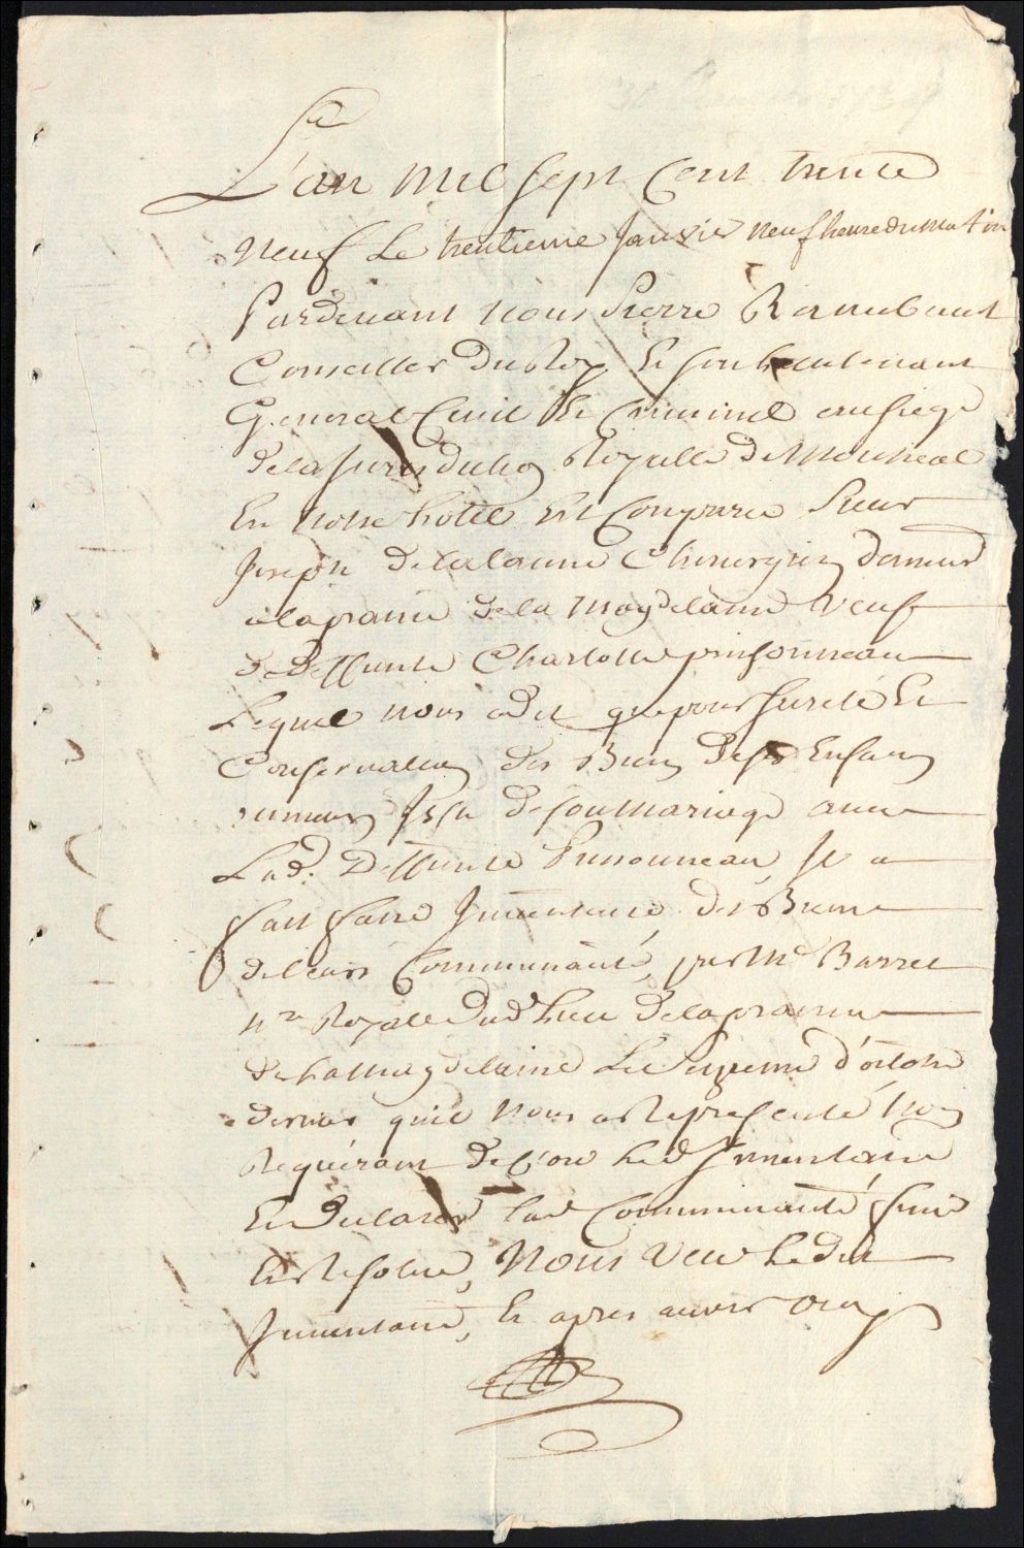 L'an mil sept Cent trente
neuf Le trentieme Janvier neuf heure du matin
Pardevant nous Pierre Raimbault
Conseiller du Roy Et son Lieutenant
General Civil Et Criminel au siege
de la Jurisdiction Royalle de Montreal
En notre hotel Est Comparu Sieur
Joseph delalanne Chirurgien demeurt
a la prairie de la Magdelaine veuf
de deffunte Charlotte prinsonneau
Lequel nous a dit que pour sureté Et
Conservation des Biens de ses Enfans
mineurs Issu de son mariage avec
Lad. Deffunte Prinsonneau Il a
fait faire Inventaire des Biens
de leurs Communauté, par Me Barret
nre Royalle dud. lieu de la prairie
de La Magdelaine Le d'octobre
dernier qu'il nous a Representé nous
Requérant de Clore led Inventaire
Et Declarer lad Communauté finie
Et Resolue, Nous veu Ledit
Inventaire, Et apres avoir ouy